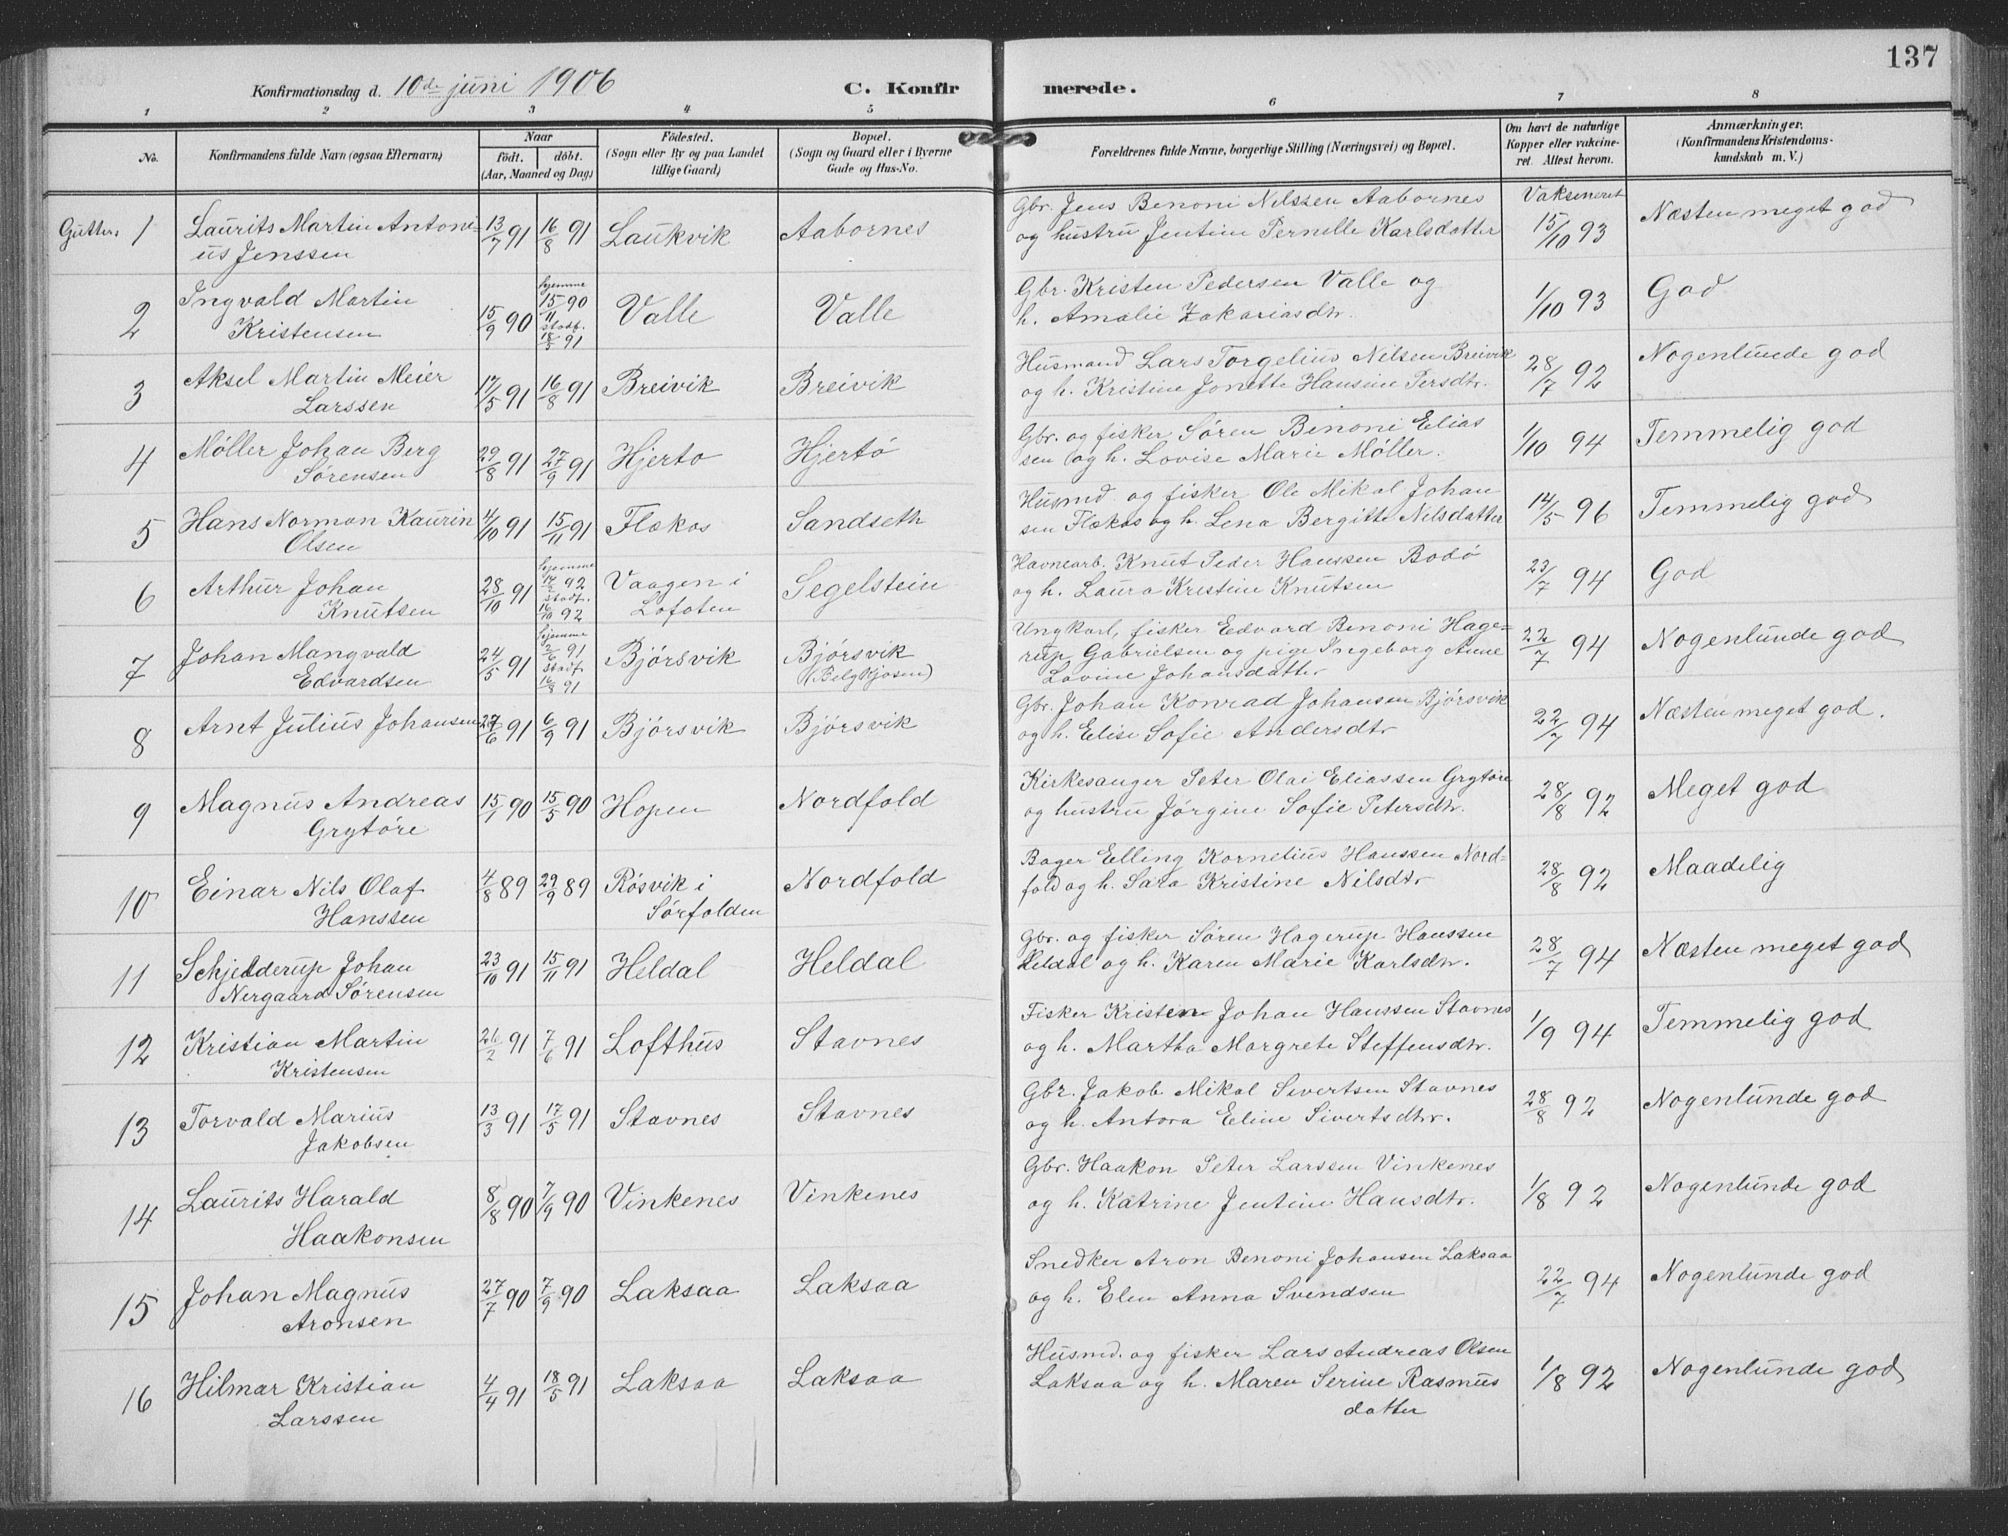 137
Konfirmationsdag d. 10de juni 1906 C. Konfir merede.
1 2 3 4 5 6 7 8
No. Konfirmandens fulde Navn (ogsaa Efternavn) Naar født. døbt. (Aar, Maaned og Dag) Fødested. (Sogn eller By og paa Landet tillige Gaard) Bopæl. (Sogn og Gaard eller i Byerne Gade og Hus-No. Forældrenes fulde Navne, borgerlige Stilling (Næringsvei) og Bopæl. Om havt de naturlige Kopper eller vakcineret. Attest herom. Anmærkninger. (Konfirmandens Kristendomskundskab m. V.)
Gutter. 1 Laurits Martin Antoni- 13/7 91 16/8 91 Laukvik Aabornes Gbr. Jens Benoni Nilssen Aabornes Vaksineret 15/10 93 Næsten meget god
us Jenssen og hustru Jentine Pernelle Karlsdatter
2 Ingvald Martin 15/9 90 hjemme 15/11 90 stadf. 18/5 91 Valle Valle Gbr. Kristen Pedersen Valle og 1/10 93 God
Kristensen h. Amalie Zakariasdtr.
3 Aksel Martin Meier 17/5 91 16/8 91 Breivik Breivik Husmand Lars Torgelius Nilsen Breivik 28/7 92 Nogenlunde god
Larssen og h. Kristine Jonette Hansine Persdtr.
4 Møller Johan Berg 29/8 91 27/9 91 Hjertø Hjertø Gbr. og fisker Søren Benoni Elias 1/10 94 Temmelig god
Sørensen sen og h. Lovise Marie Møller.
5 Hans Norman Kaurin 4/10 91 15/11 91 Flækos Sandseth Husmd og fisker Ole Mikal Johan 14/5 96 Temmelig god
Olsen sen Flækos og h. Lena Bergitte Nilsdatter
6 Arthur Johan 28/10 91 hjemme 14/2 92 stadf. 16/10 92 Vaagen i Segelstein Havnearb. Knut Peder Hanssen Bodø 23/7 94 God
Knutsen Lofoten og h. Laura Kristine Knutsen
7 Johan Mangvald 24/5 91 hjemme 2/6 91 stadf. 16/8 91 Bjørsvik Bjørsvik Ungkarl, fisker Edvard Benoni Hage= 22/7 94 Nogenlunde god
Edvardsen (Belgkjosen) rup Gabrielsen og pige Ingeborg Anne
Lovine Johansdatter
8 Arnt Julius Johansen 27/6 91 6/9 91 Bjørsvik Bjørsvik Gbr. Johan Konrad Johansen Bjørsvik 22/7 94 Næsten meget god.
og h. Elise Sofie Andersdtr
9 Magnus Andreas 15/1 90 15/5 90 Hopen Nordfold Kirkesanger Peter Olai Eliassen Grytøre 28/8 92 Meget god
Grytøre og hustru Jørgine Sofie Petersdtr.
10 Einar Nils Olaf 4/8 89 29/9 89 Røsvik i Nordfold Bager Elling Kornelius Hanssen Nord= 28/8 92 Maadelig
Hanssen Sørfolden fold og h. Sara Kristine Nilsdtr
11 Schjelderup Johan 23/10 91 15/11 91 Heldal Heldal Gbr. og fisker Søren Hagerup Hanssen 28/7 94 Næsten meget god
Nergaard Sørensen Heldal og h. Karen Marie Karlsdtr.
12 Kristian Martin 26/2 91 7/6 91 Lofthus Stavnes Fisker Kristen Johan Hanssen Stavnes 1/9 94 Temmelig god
Kristensen og h. Martha Margrete Steffensdtr.
13 Torvald Marius 13/3 91 17/5 91 Stavnes Stavnes Gbr. Jakob Mikal Sivertsen Stavnes 28/8 92 Nogenlunde god
Jakobsen og h. Antora Eline Sivertsdtr.
14 Laurits Harald 8/8 90 7/9 90 Vinkenes Vinkenes Gbr. Haakon Peter Larssen Vinkenes 1/8 92 Nogenlunde god
Haakonsen og h. Katrine Jentine Hansdtr.
15 Johan Magnus 27/7 90 7/9 90 Laksaa Laksaa Snedker Aron Benoni Johansen Laksaa 22/7 94 Nogenlunde god
Aronsen og h. Elen Anna Svendsen
16 Hilmar Kristian 4/4 91 18/5 91 Laksaa Laksaa Husmd. og fisker Lars Andreas Olsen 1/8 92 Nogenlunde god
Larssen Laksaa og h. Maren Serine Rasmus
datter